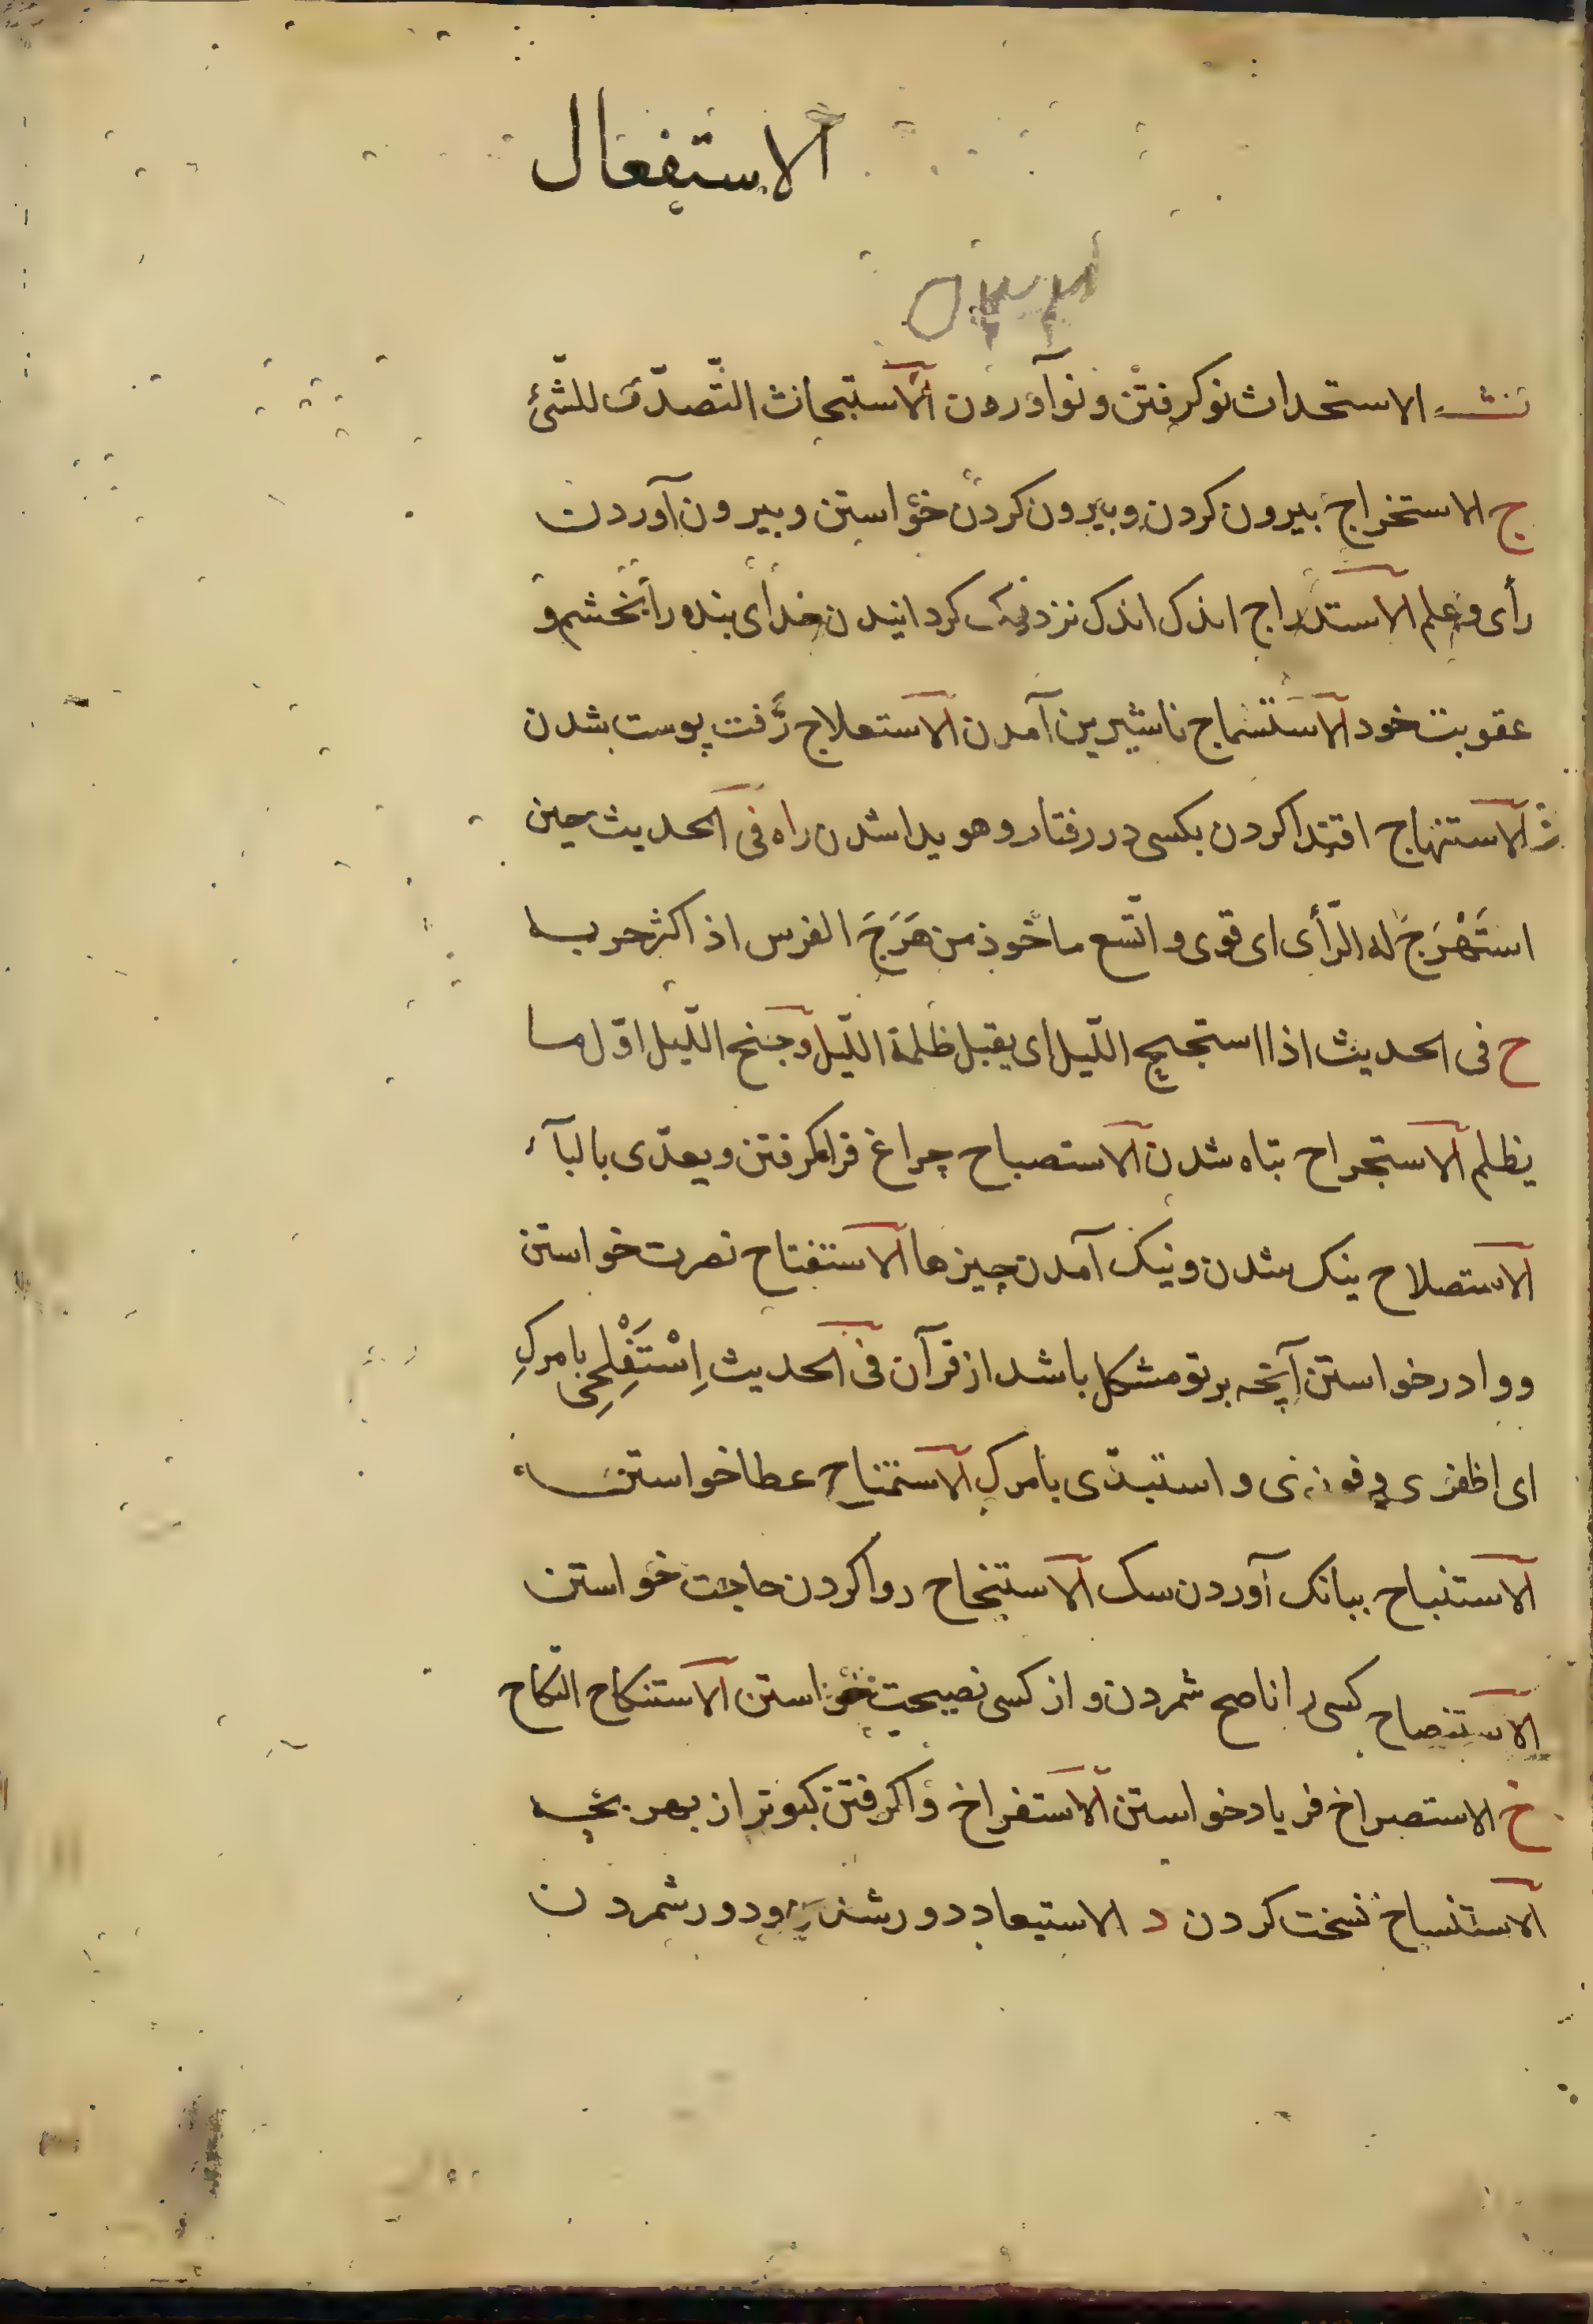 الاستفعال
ث الاستحداث نو كرفتن و نو آوردن الاستبحاث التّصدّى للشّئ
ج الاستخراج بيرون كردن و بيرون كردن خواستن و بيرون آوردن
رأى و علم الاستدراج اندك اندك نزديك كردانيدن خداى بنده را بخشم و
عقوبت خود الاستسماج ناشيرين آمدن الاستعلاج زفت پوست شدن
الاستنهاج اقتدا كردن بكسى در رفتار و هويدا شدن راه فى الحديث حين
استَهْرَجَ له الرّأى اى قوى و اتّسع ماخوذ من هَرَجَ الفرس اذ اكثر جريه
ح فى الحديث اذا استجنح اللّيل اى يقبل ظلمة اللّيل و جنح اللّيل اوّل ما
يظلم الاستجراح تباه شدن الاستصباح چراغ فراكرفتن و يعدّى بالبآء
الاستصلاح نيك شدن و نيك آمدن چيزها الاستفتاح نصرت خواستن
و وادر خواستن آنچه بر تو مشكل باشد از قرآن فى الحديث اِسْتَفْلِحِى بامركِ
اى اظفرى و فوزى و استبدّى بامركِ الاستمناح عطا خواستن
الاستنباح ببانك آوردن سك الاستنجاح روا كردن حاجت خواستن
الاستنصاح كسى را ناصح شمردن و از كسى نصيحت خواستن الاستنكاح النكاح
خ الاستصراخ فرياد خواستن الاستفراخ واكرفتن كبوتر از بهر بچه
الاستنساخ نسخت كردن د الاستبعاد دور شدن و دور شمردن